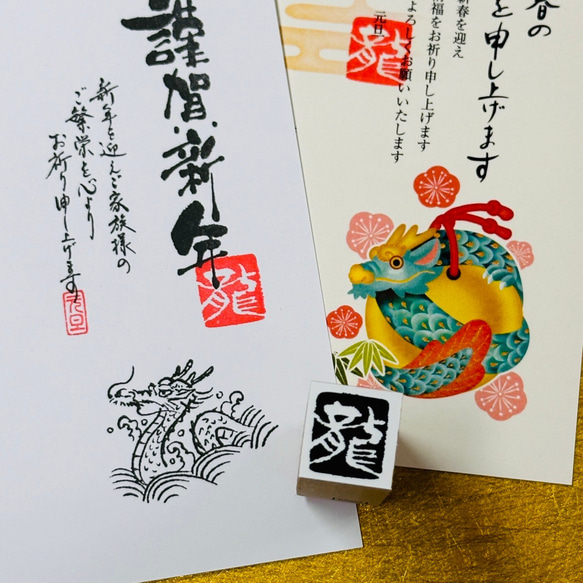 謹賀新年
龍
新年を迎えご家族様の
ご繁栄を心より
お祈り申し上げます
元旦
春の
を申し上げます
新春を迎え
福をお祈り申し上げます
よろしくお願いいたします
元日
龍
龍